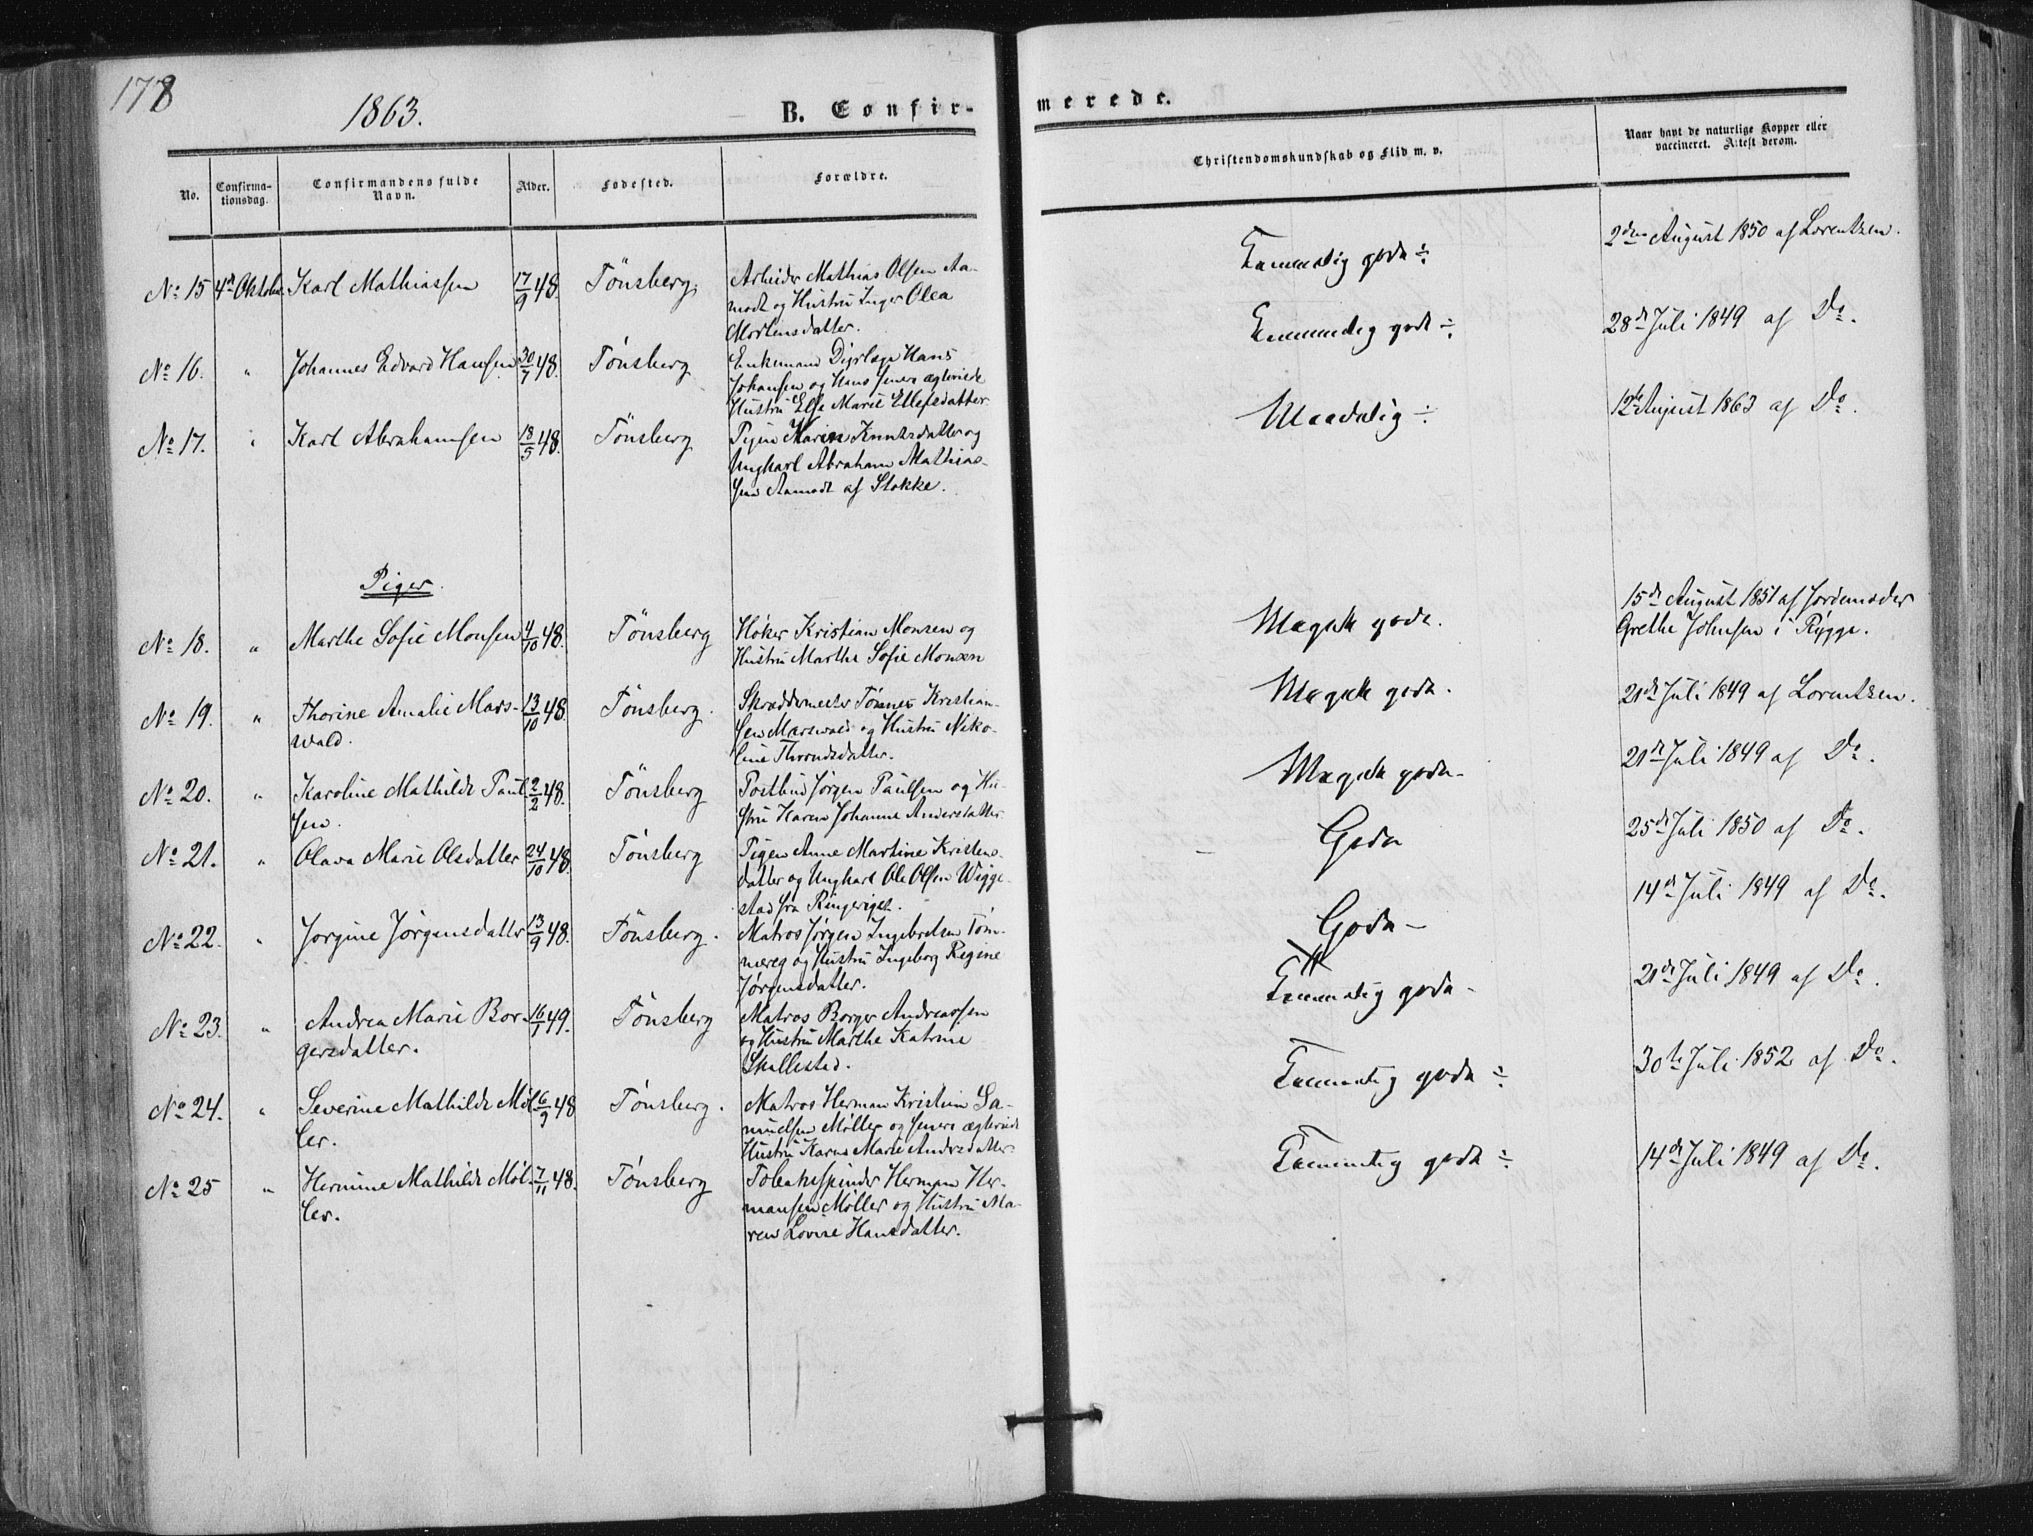 178
1863.
B. Confir-
merede.
No.
Confirma-
tionsdag.
Confirmandens fulde
Navn.
Alder.
Fødested.
Forældre.
Christendomskundskab og Flid m. v.
Naar havt de naturlige Kopper eller
vaccineret. Attest derom.
No 15 4de Oktober Karl Mathiassen 17/9 48. Tönsberg. Arbeider Mathias Olsen Aa-
modt og Hustru Inger Olea
Mortensdatter.
Temmelig gode ÷
2den August 1850 af Lorentzen.
No 16. " Johannes Edvard Hansen 30/7 48. Tönsberg Enkemand Hans
Johansen og Hans Hustru Else Marie Ellefsdatter
Temmelig godt ÷
28de Juli 1849 af Do.
No 17. " Karl Abrahamsen 18/5 48. Tönsberg Pigen Karen Knutsdatter og
Ungkarl Abraham Mathias-
sen Aamodt af Stokke.
Maadelig ÷
12te August 1863 af Do.
Piger.
No 18. " Marthe Sofie Monsen 4/10 48. Tönsberg Høker Kristian Monsen og
Hustru Marthe Sofie Monsen
Meget gode.
15de August 1851 af Jordemoder
Grethe Johnsen i Rygge.
No 19. " Thorine Amalie Mars-
wald. 13/10 48. Tönsberg. Skræddermester Tønnes Kristian-
sen Marswald og Hustru Niko-
line Throndsdatter.
Meget gode.
21de Juli 1849 af Lorentzen.
No 20. " Karoline Mathilde Paul-
sen. 2/2 48. Tönsberg Postbud Jørgen Paulsen og Hu-
stru Karen Johanne Andersdatter
Meget gode
21de Juli 1849 af Do.
No 21. " Olava Marie Olsdatter 24/10 48. Tönsberg Pigen Anne Martine Kristens-
datter og Ungkarl Ole Olsen Wigge-
stad fra Ringeriget.
Gode
25de Juli 1850 af Do.
No 22. " Jorgine Jørgensdatter 13/9 48. Tönsberg. Matros Jørgen Ingebretsen Tøm-
mereg og Hustru Ingeborg Regine
Jørgensdatter.
Gode
14de Juli 1849 af Do.
No 23. " Andrea Marie Bor-
gersdatter. 16/1 49. Tönsberg Matros Borger Andreassen
og Hustru Marthe Katrine
Skallestad.
Temmelig gode
21de Juli 1849 af Do.
No 24. " Severine Mathilde Møl-
ler. 16/9 48 Tönsberg. Matros Herman Kristian Sa-
muelsen Møller og
Hustru Karen Marie Andersdatter
Temmelig gode ÷
30te Juli 1852 af Do.
No 25 " Hermine Mathilde Møl-
ler. 7/11 48. Tönsberg Tobakspinder Herman Her-
mansen Møller og Hustru Ma-
ren Lovise Hansdatter.
Temmelig gode ÷
14de Juli 1849 af Do.